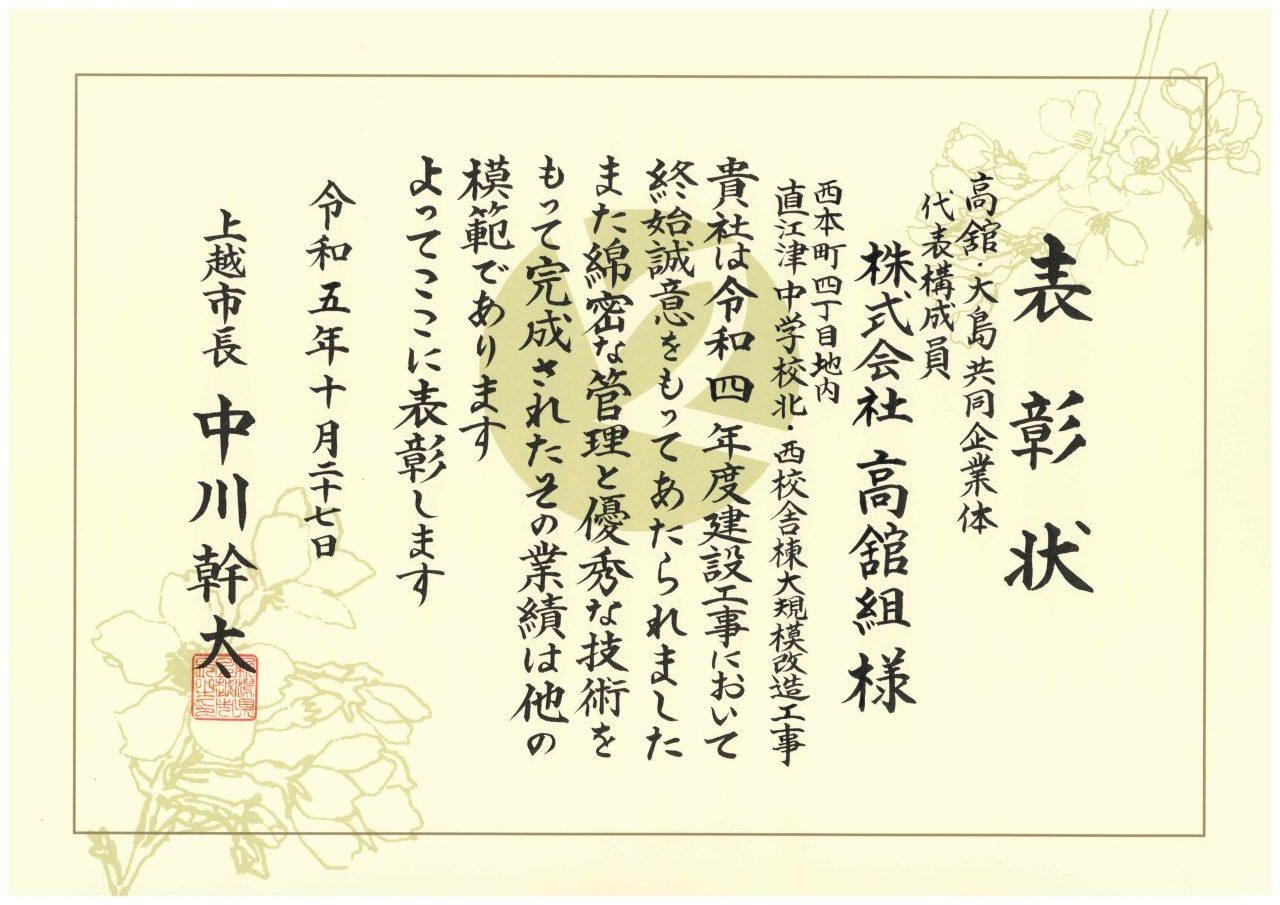 表彰状
高舘・大島共同企業体
代表構成員
株式会社 高舘組 様
西本町四丁目地内
直江津中学校北・西校舎棟大規模改造工事
貴社は令和四年度建設工事において
終始誠意をもってあたられました
また綿密な管理と優秀な技術を
もって完成されたその業績は他の
模範であります
よってここに表彰します
令和五年十月二十七日
上越市長 中川幹太